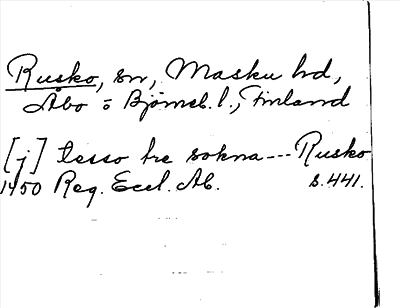 Rusko, sn, Masku hd,
Åbo o Björneb. l., Finland
[j] tesso tre sokna --- Rusko
1450 Reg. Eccl. Ab. s. 441.